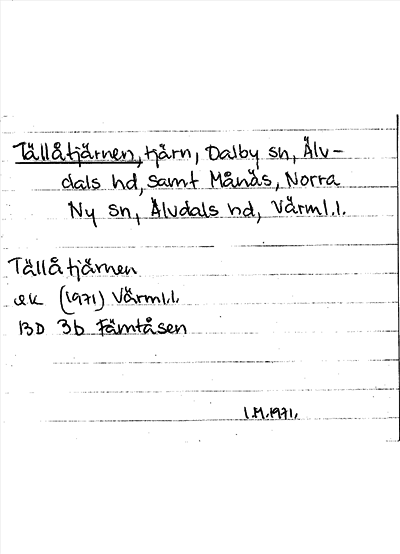 Tällåtjärnen, tjärn, Dalby sn, Älv-
dals hd, samt Månäs, Norra
Ny sn, Älvdals hd, Värml.l.
Tällåtjärnen
ek (1971) Värml.l.
13D 3b Fämtåsen
I.M.1971.